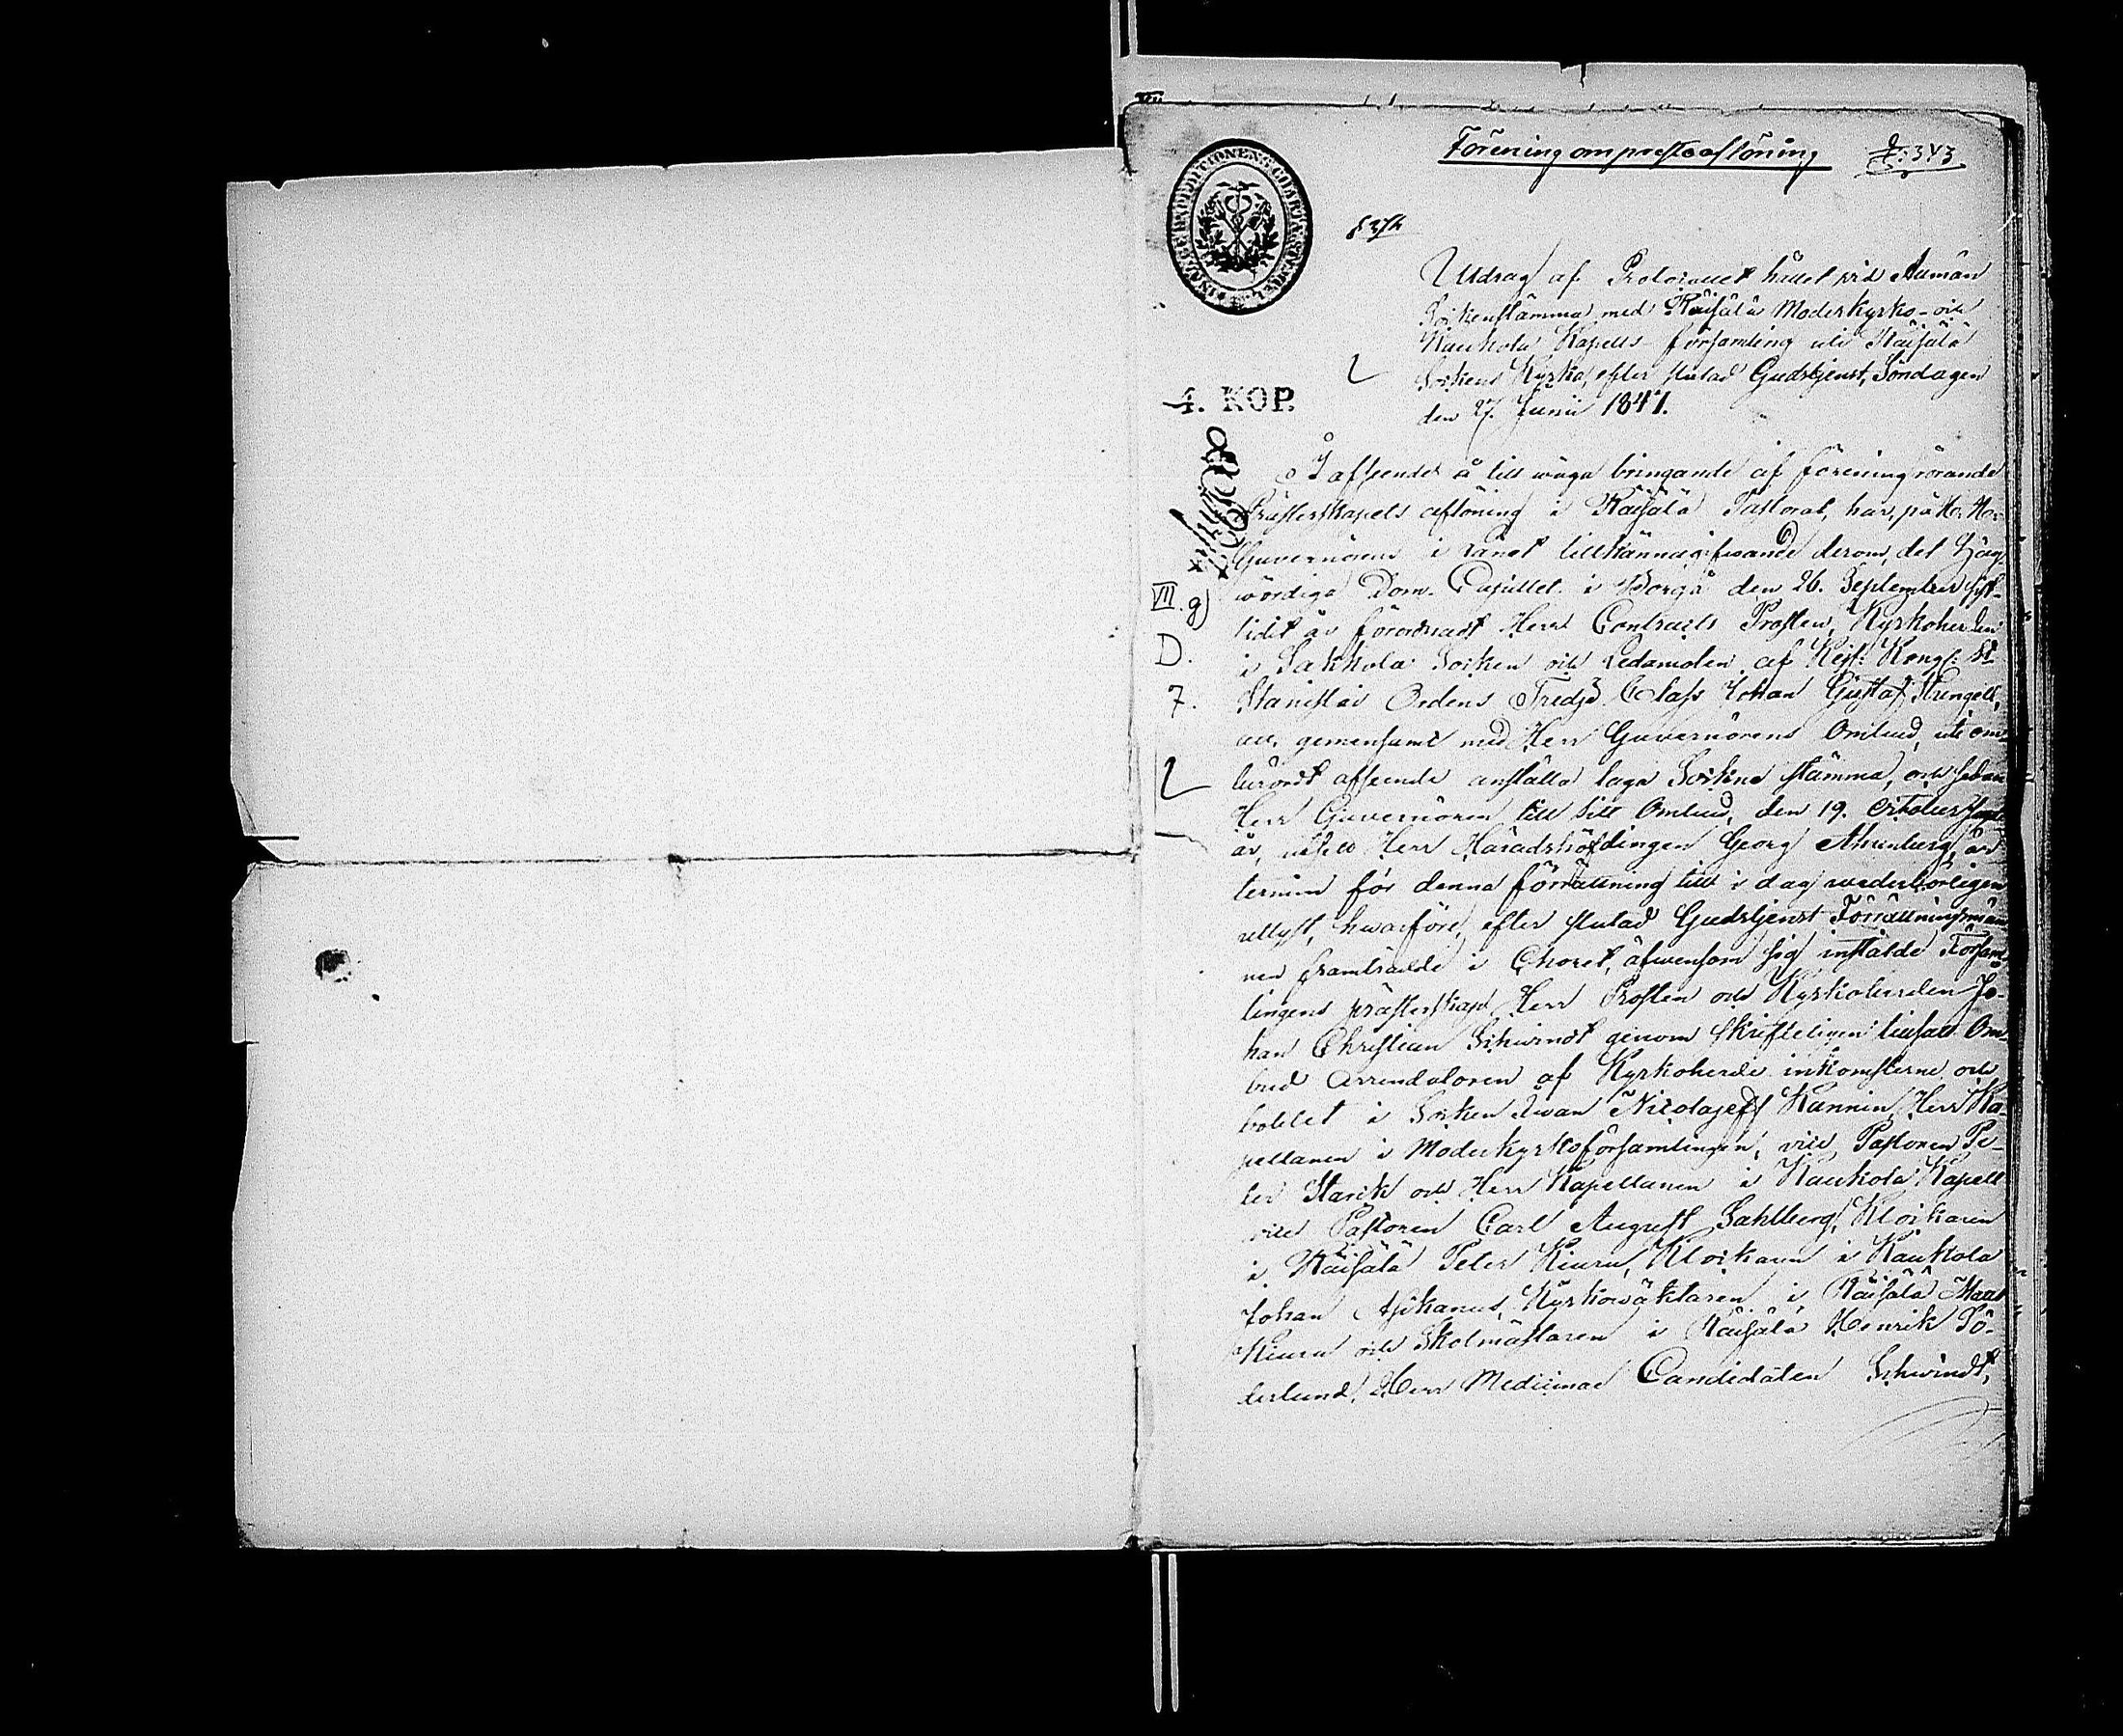 Förening om prestaaflöning
§ 3/4
Utdrag af Protocollet hållet vid Allmän
Sockenstämma med Räisälä Moderkyrko- och
Kaukola Kapells-församling uti Räisälä
Sockens Kyrka, efter slutad Gudstjenst, Söndagen
den 27. Junii 1847.
4. KOP.
VII. g)
D.
7.
I afseende å till wäga bringande af förening rörande
Prästerskapets aflöning i Räisälä Pastorat, har, på Hr
Guvernörens i länet tillkännagifwande derom, det Hög-
wördige Dom-Capitlet i Borgå den 26. September sist-
lidit år förordnadt Herr Contracts Prosten, Kyrkoherden
i Sakkola Socken och Ledamoten af Kejs: Kongl: St
Stanislai Ordens Tredje Class Johan Gustaf
att, gemensamt med Herr Guvernörens Ombud, uti om-
berördt afseende anställa laga Sockne stämma, och sedan
Herr Guvernören till sitt Ombud, den 19. October
år, utsedt Herr Häradshöfdingen Georg Ahrenberg, är
termin för denna förrättning till i dag wederbörligen
utlyst, hwarföre, efter slutad Gudstjenst Förrättningsmän-
nen framträdde i Choret, äfwensom sig inställde Försam-
lingens prästerskap Herr Prosten och Kyrkoherden Jo-
han Christian Schwindt genom skrifteligen Om-
bud Arrendatoren af Kyrkoherde inkomsterne och
bohlet i Socken Iwan Nicolajeff Kannin, Herr Ka-
pellanen i Moderkyrkoförsamlingen, vice Pastoren Pe-
ter Starck och Herr Kapellanen i Kaukola Kapell
vice Pastoren Carl August Sahlberg, Klockaren
i Räisälä Peter Kiuru, Klockaren i Kaukola
Johan Kyrkowäktaren i Räisälä
Kiuru och Skolmästaren i Räisälä Henrik Sö-
derlund, Herr Medicinae Candidaten Schwindt,